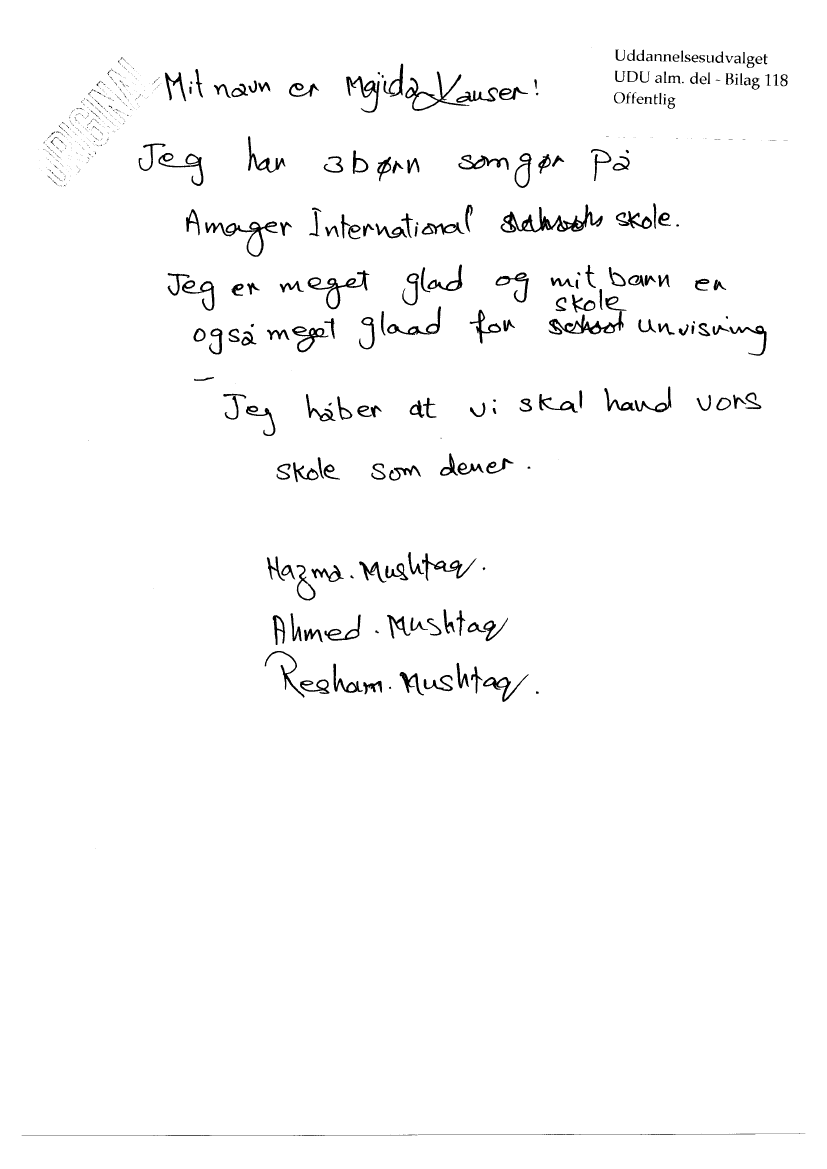 Uddannelsesudvalget
UDU alm. del - Bilag 118
Offentlig
ORIGINAL
Mit navn er Majida Kauser!
Jeg har 3 børn som gør på
Amager International skole.
Jeg er meget glad og mit barn er
også meget glaad for skole unvisning
Jeg håber at vi skal hand vors
skole som dener.
Hazma. Mushtaq.
Ahmed. Mushtaq
Resham. Mushtaq.